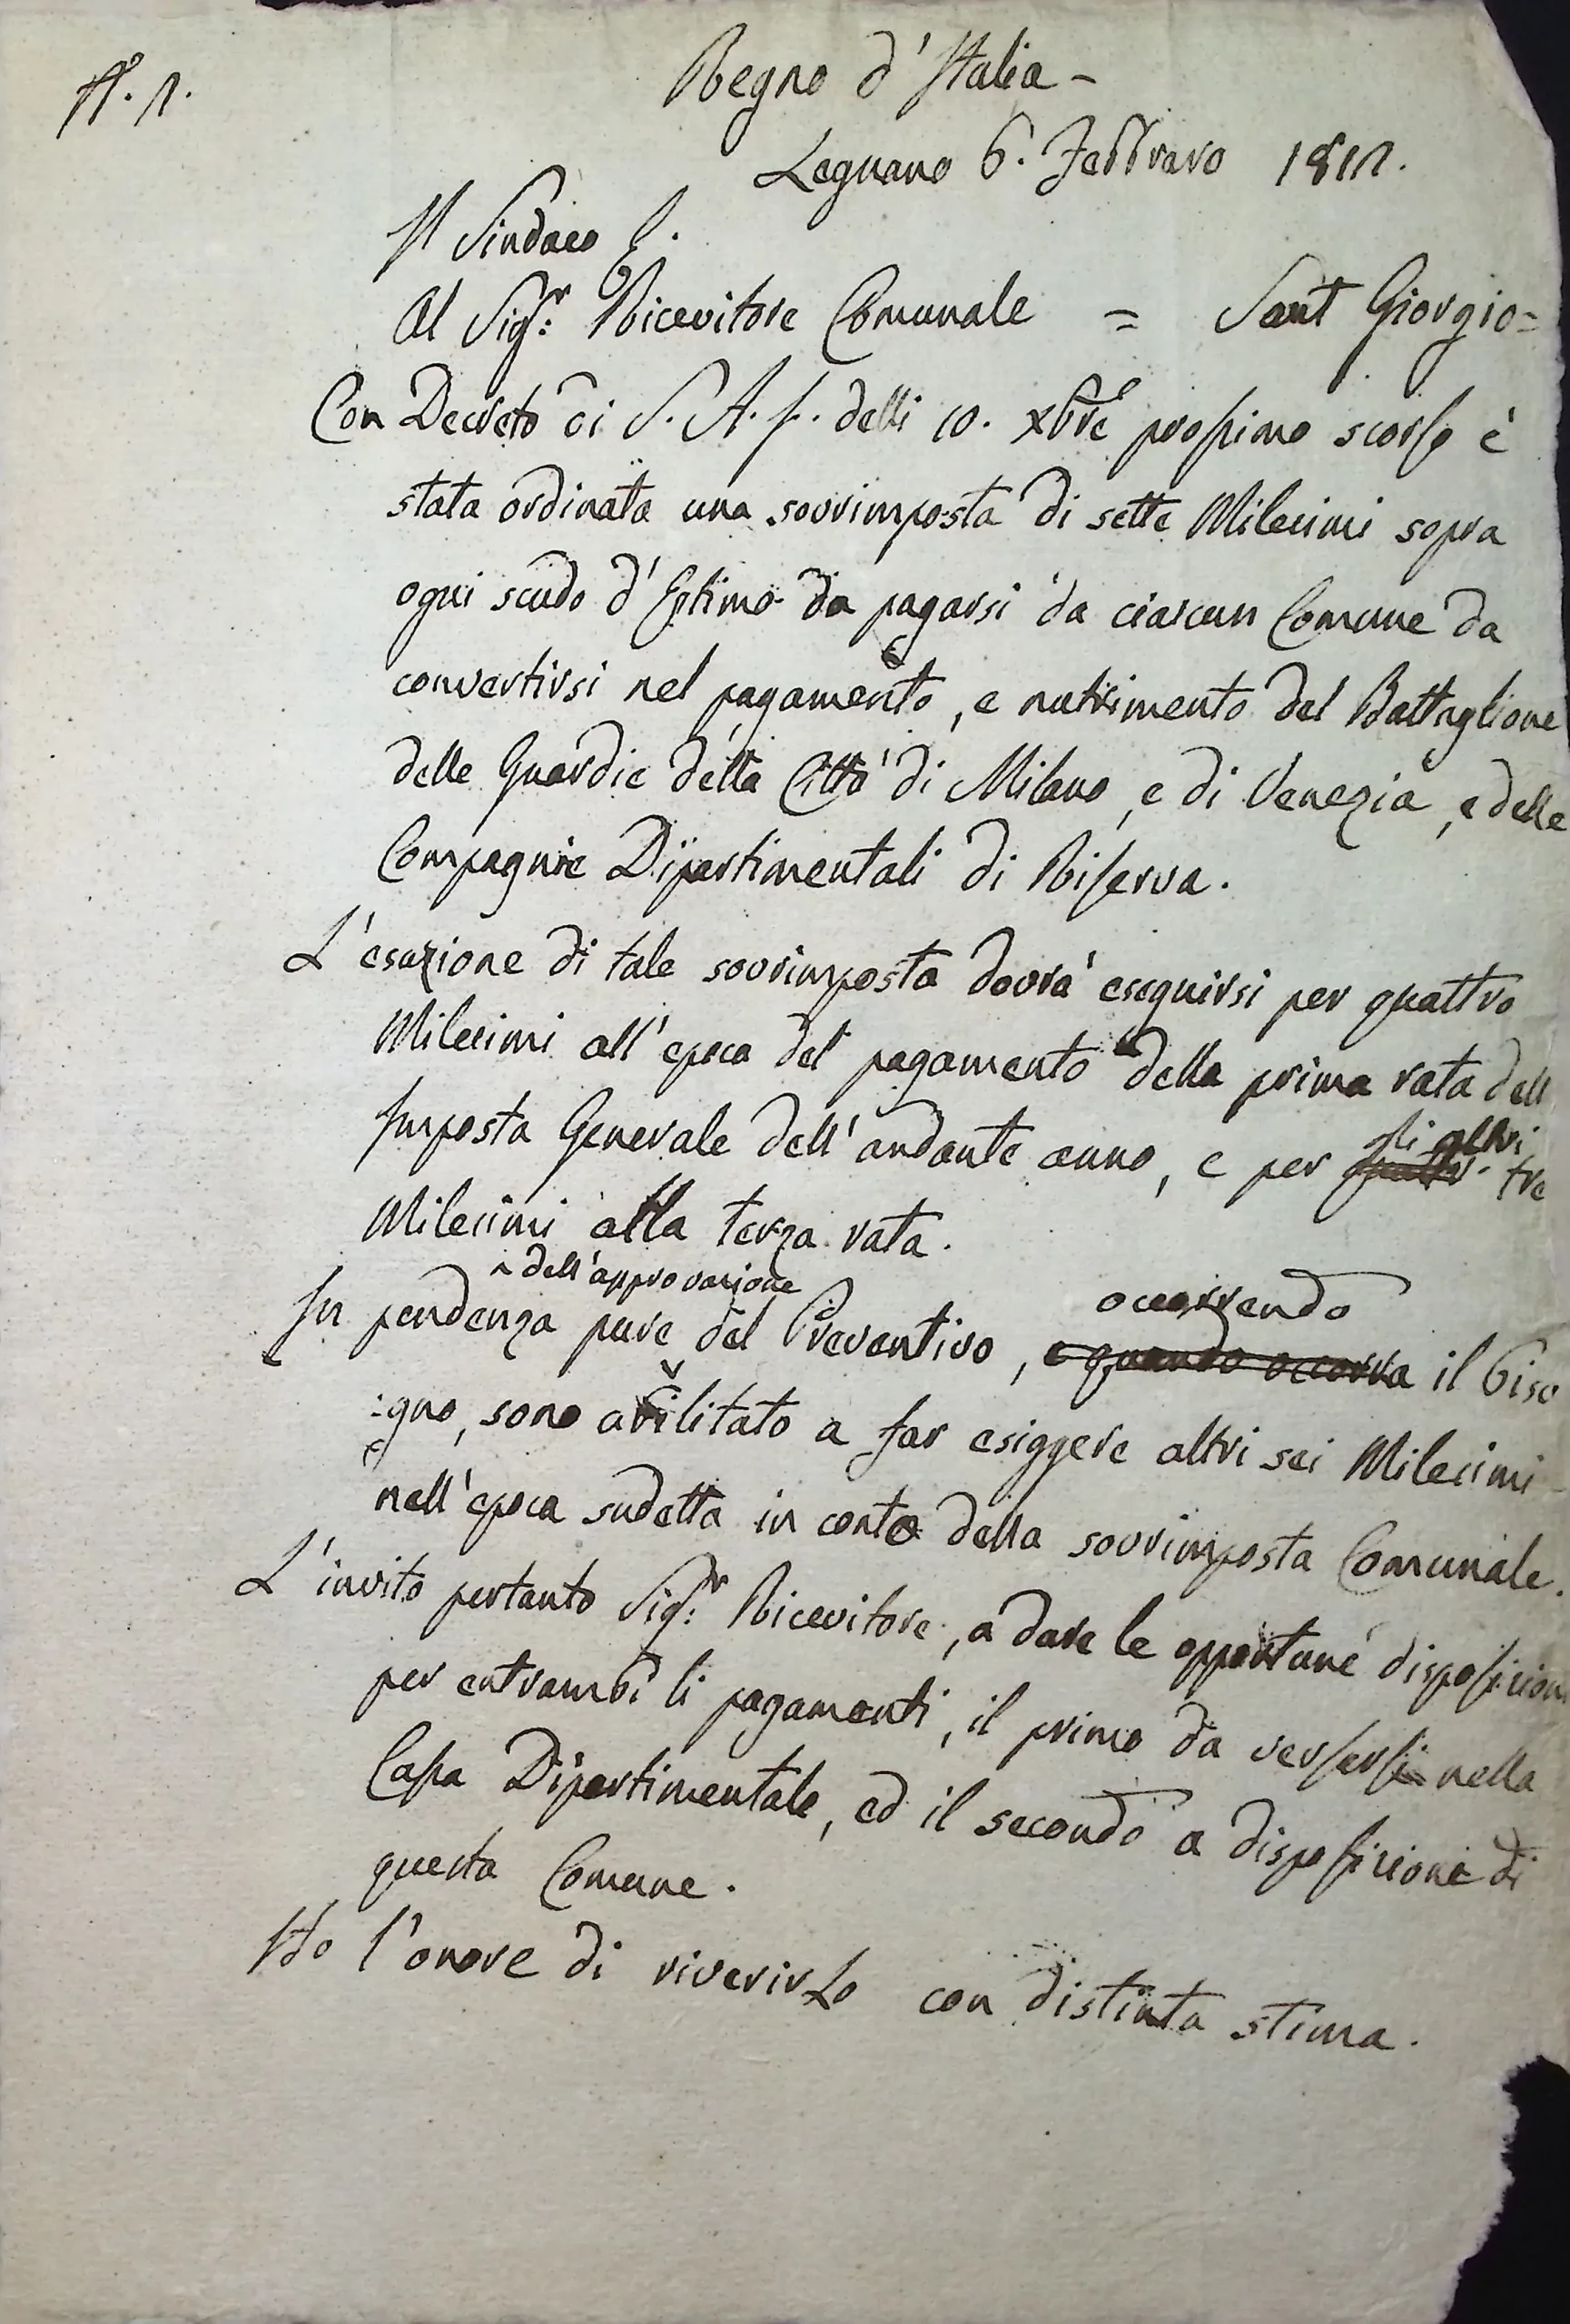 N.° 1.
Regno d'Italia -
Legnano 6. Febbraro 1811.
Il Sindaco
Al Sig.r Ricevitore Comunale = Sant Giorgio =
Con Decreto di S. A. I. delli 10. Xbre prossimo scorso è
stata ordinata una sovrimposta di sette Milecimi sopra
ogni scudo d'Estimo da pagarsi da ciascun Comune da
convertirsi nel pagamento, e nutrimento del Battaglione
delle Guardie della Città di Milano, e di Venezia, e delle
Compagnie Dipartimentali di Riserva.
L'esazione di tale sovrimposta dovrà eseguirsi per quattro
Milecimi all'epoca del pagamento della prima rata dell
Imposta Generale dell'andante anno, e per gli altri tre
Milecimi alla terza rata.
dell'approvazione
In pendenza pure del Preventivo, e quando occorra occorrendo il biso
:gno, sono abilitato a far esiggere altri sei Milecimi
nell'epoca sudetta in conto della sovrimposta Comunale.
L'invito pertanto Sig.r Ricevitore, a dare le opportune disposizioni
per entrambi li pagamenti, il primo da versarsi nella
Cassa Dipartimentale, ed il secondo a disposizione di
questa Comune.
Ho l'onore di riverirLo con distinta stima.